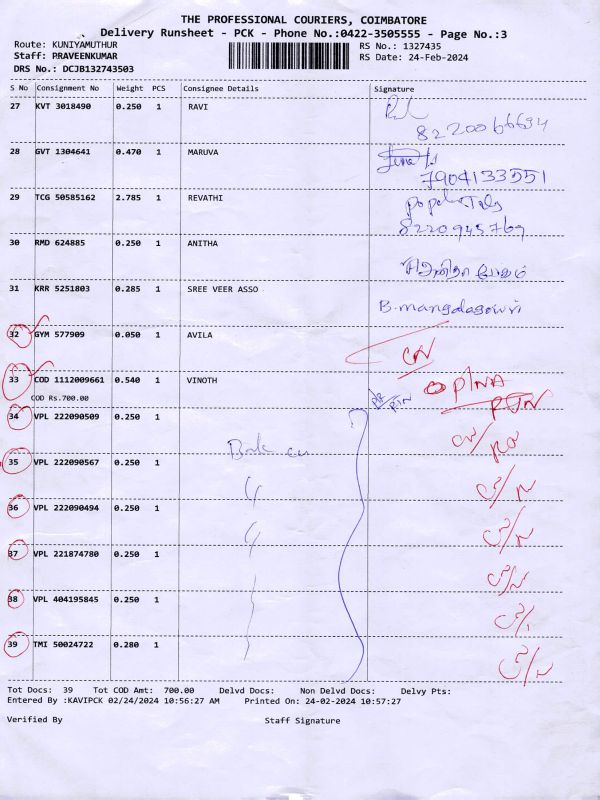 THE PROFESSIONAL COURIERS, COIMBATORE
Delivery Runsheet - PCK - Phone No.:0422-3505555 - Page No.:3
Route: KUNIYAMUTHUR RS No.: 1327435
Staff: PRAVEENKUMAR RS Date: 24-Feb-2024
DRS No.: DCJB132743503
S No Consignment No Weight PCS Consignee Details Signature
27 KVT 3018490 0.250 1 RAVI
28 GVT 1304641 0.470 1 MARUVA
7904133551
29 TCG 50585162 2.785 1 REVATHI
8220945769
30 RMD 624885 0.250 1 ANITHA
31 KRR 5251803 0.285 1 SREE VEER ASSO B.mangalagowri
32 GYM 577909 0.050 1 AVILA
33 COD 1112009661 0.540 1 VINOTH
COD Rs.700.00
34 VPL 222090509 0.250 1
35 VPL 222090567 0.250 1
36 VPL 222090494 0.250 1
37 VPL 221874780 0.250 1
38 VPL 404195845 0.250 1
39 TMI 50024722 0.280 1
Tot Docs: 39 Tot COD Amt: 700.00 Delvd Docs: Non Delvd Docs: Delvy Pts:
Entered By :KAVIPCK 02/24/2024 10:56:27 AM Printed On: 24-02-2024 10:57:27
Verified By Staff Signature